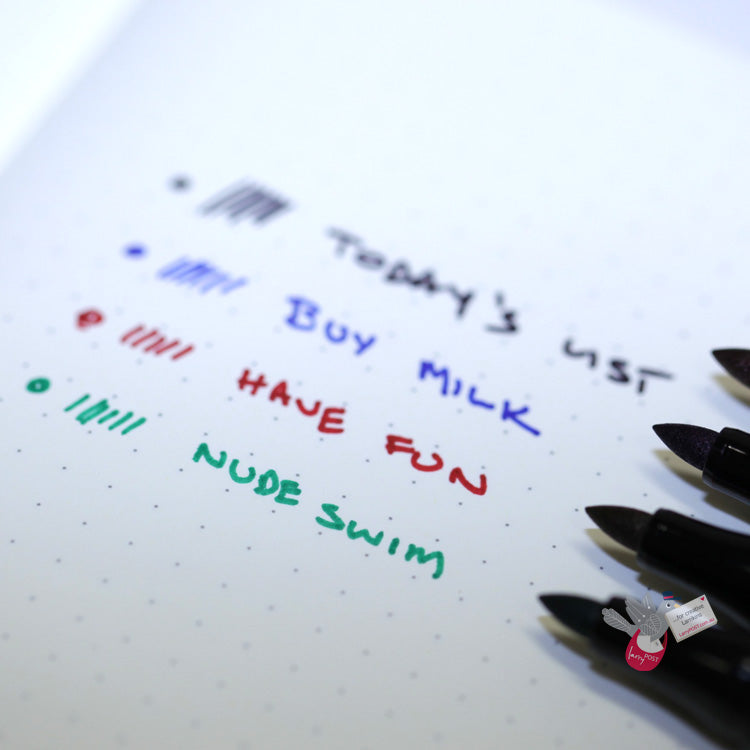 TODAY'S LIST
BUY MILK
HAVE FUN
NUDE SWIM
...for creative
Larrikins
LarryPOST.com.au
larryPOST